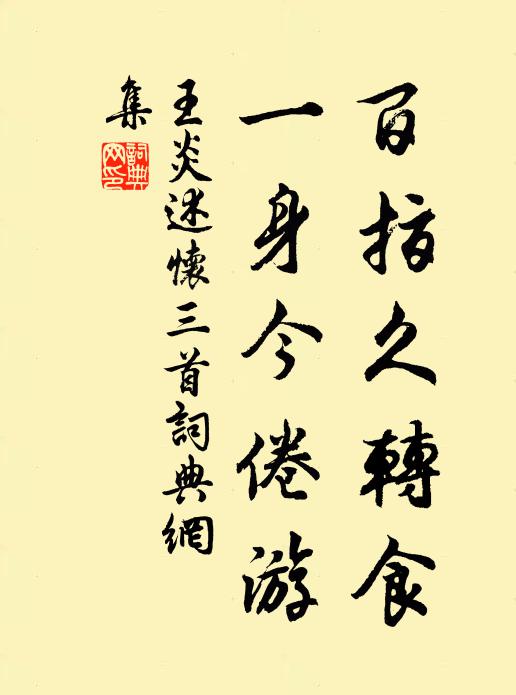 百指久轉食
一身今倦游
王炎述懷三首詞典網
集
詞典網印